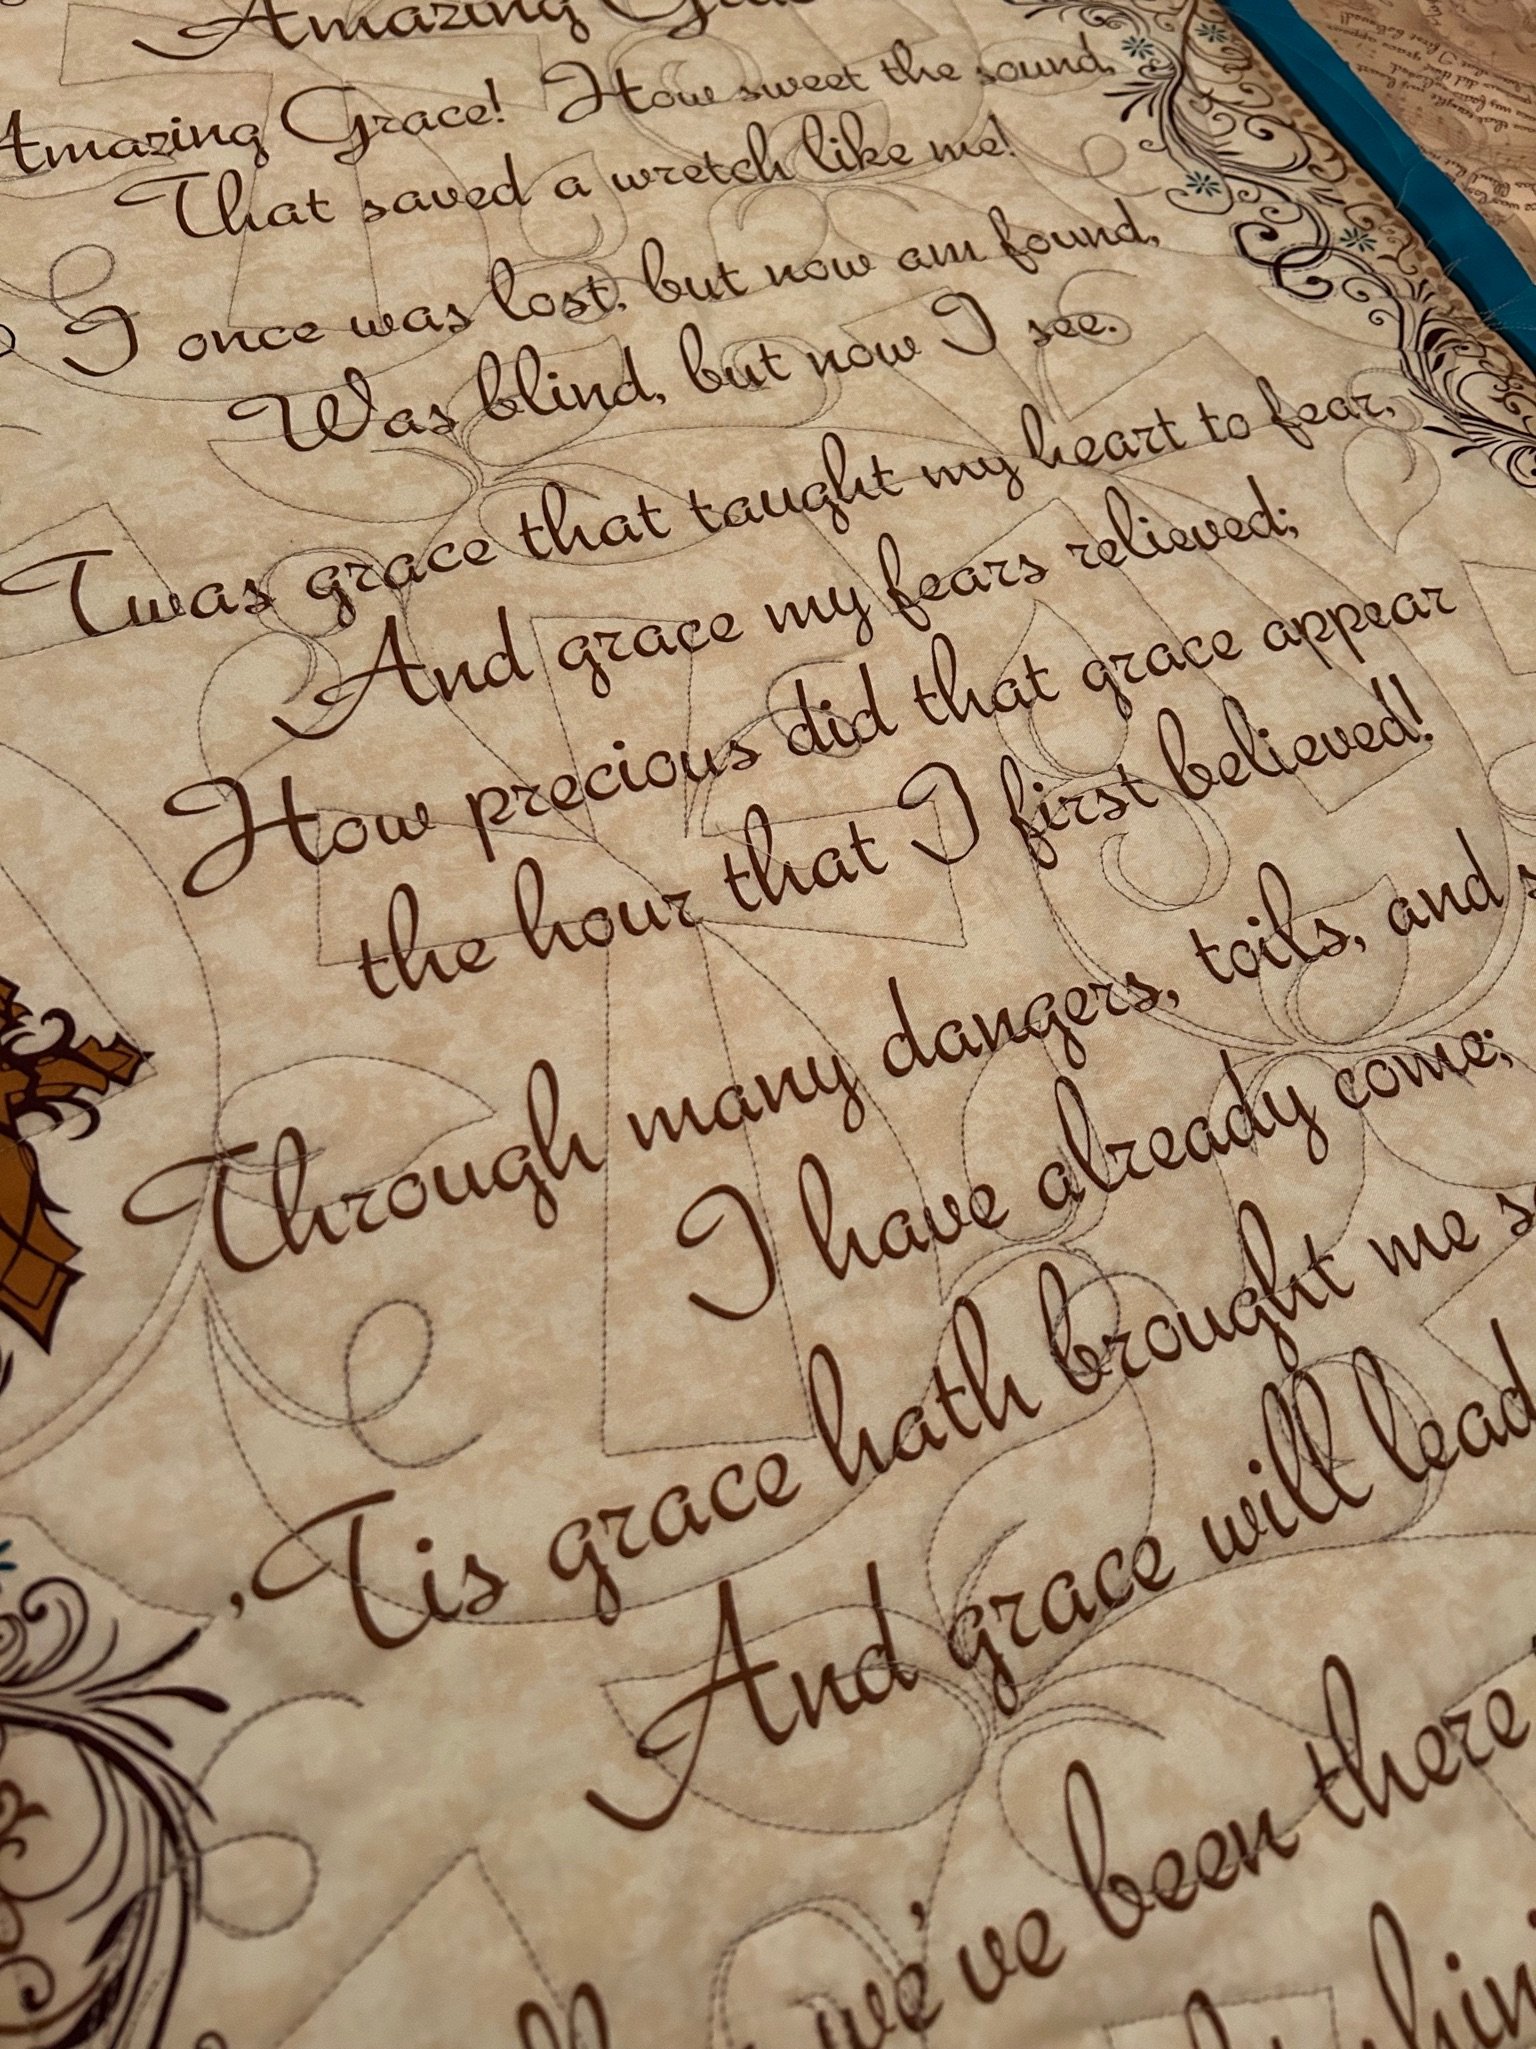 Amazing
Amazing Grace! How sweet the sound,
That saved a wretch like me!
I once was lost, but now am found,
Was blind, but now I see.
Twas grace that taught my heart to fear,
And grace my fears relieved;
How precious did that grace appear
the hour that I first believed!
Through many dangers, toils, and
I have already come;
'Tis grace hath brought me
And grace will lead
we've been there